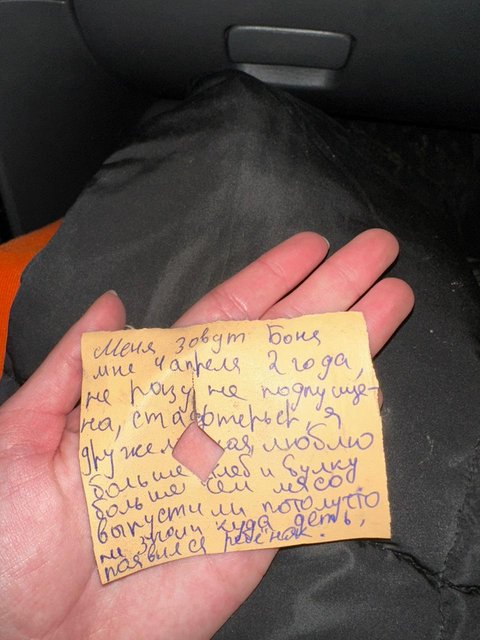 Меня зовут Боня
мне 4 апреля 2 года,
не разу не подпуще-
на, стаффтерьер я
друже ная, люблю
больше хлеб и булку
больше чем мясо
выпустили потомучто
не знали куда деть,
появился ребёнак.